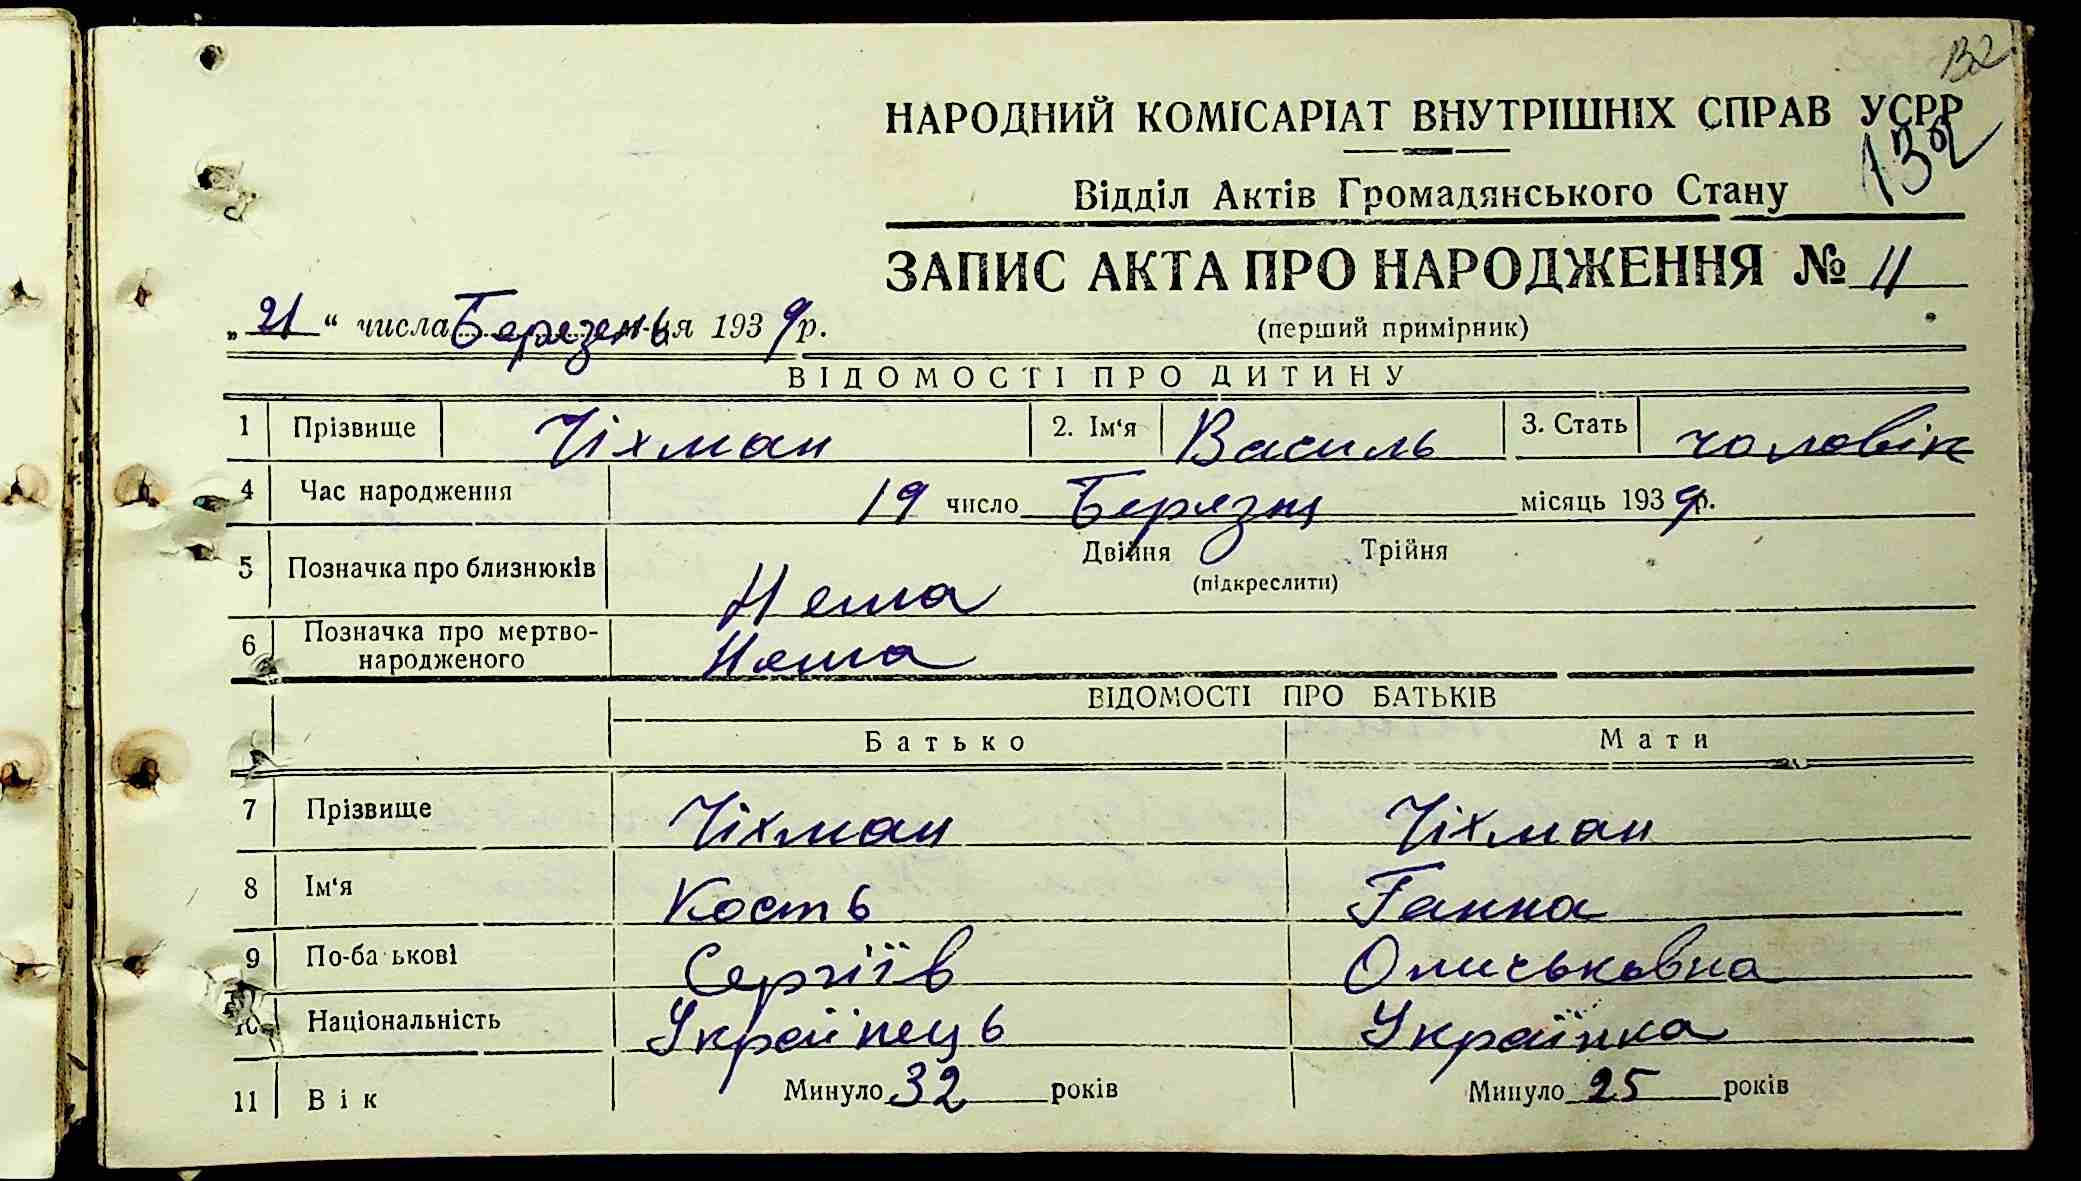 132
НАРОДНИЙ КОМІСАРІАТ ВНУТРІШНІХ СПРАВ УСРР
132
Відділ Актів Громадянського Стану
ЗАПИС АКТА ПРО НАРОДЖЕННЯ № 11
„21“ числа Березень м-ця 1939 р.
(перший примірник)
ВІДОМОСТІ ПРО ДИТИНУ
1 Прізвище Чіхман 2. Ім‘я Василь 3. Стать чоловік
4 Час народження 19 число Берязня місяць 1939 р.
5 Позначка про близнюків Нема Двійня Трійня
(підкреслити)
6 Позначка про мертво-
народженого Няма
ВІДОМОСТІ ПРО БАТЬКІВ
Батько Мати
7 Прізвище Чіхман Чіхман
8 Ім‘я Кость Ганна
9 По-ба ькові Сергіїв
10 Національність Українець Українка
11 Вік Минуло 32 років Минуло 25 років